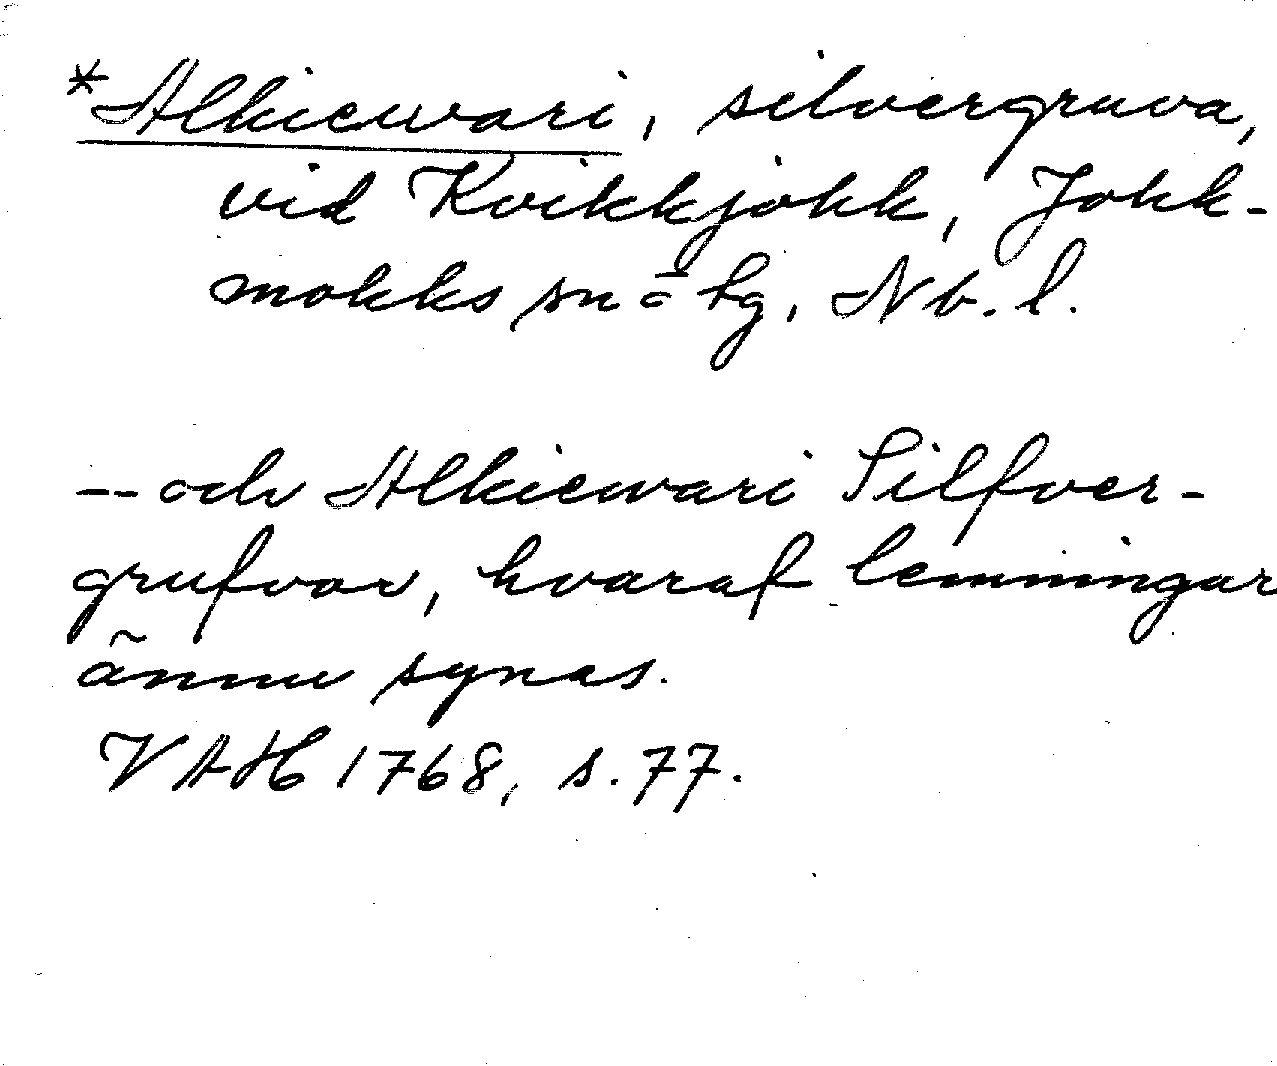 *Alkiewari, silvergruva,
vid Kvikkjokk, Jokk-
mokks sn o hg, Nb. l.
-- och Alkiewari Silfver-
grufvor, hvaraf lemningar
ännu synas.
VAH 1768, s. 77.